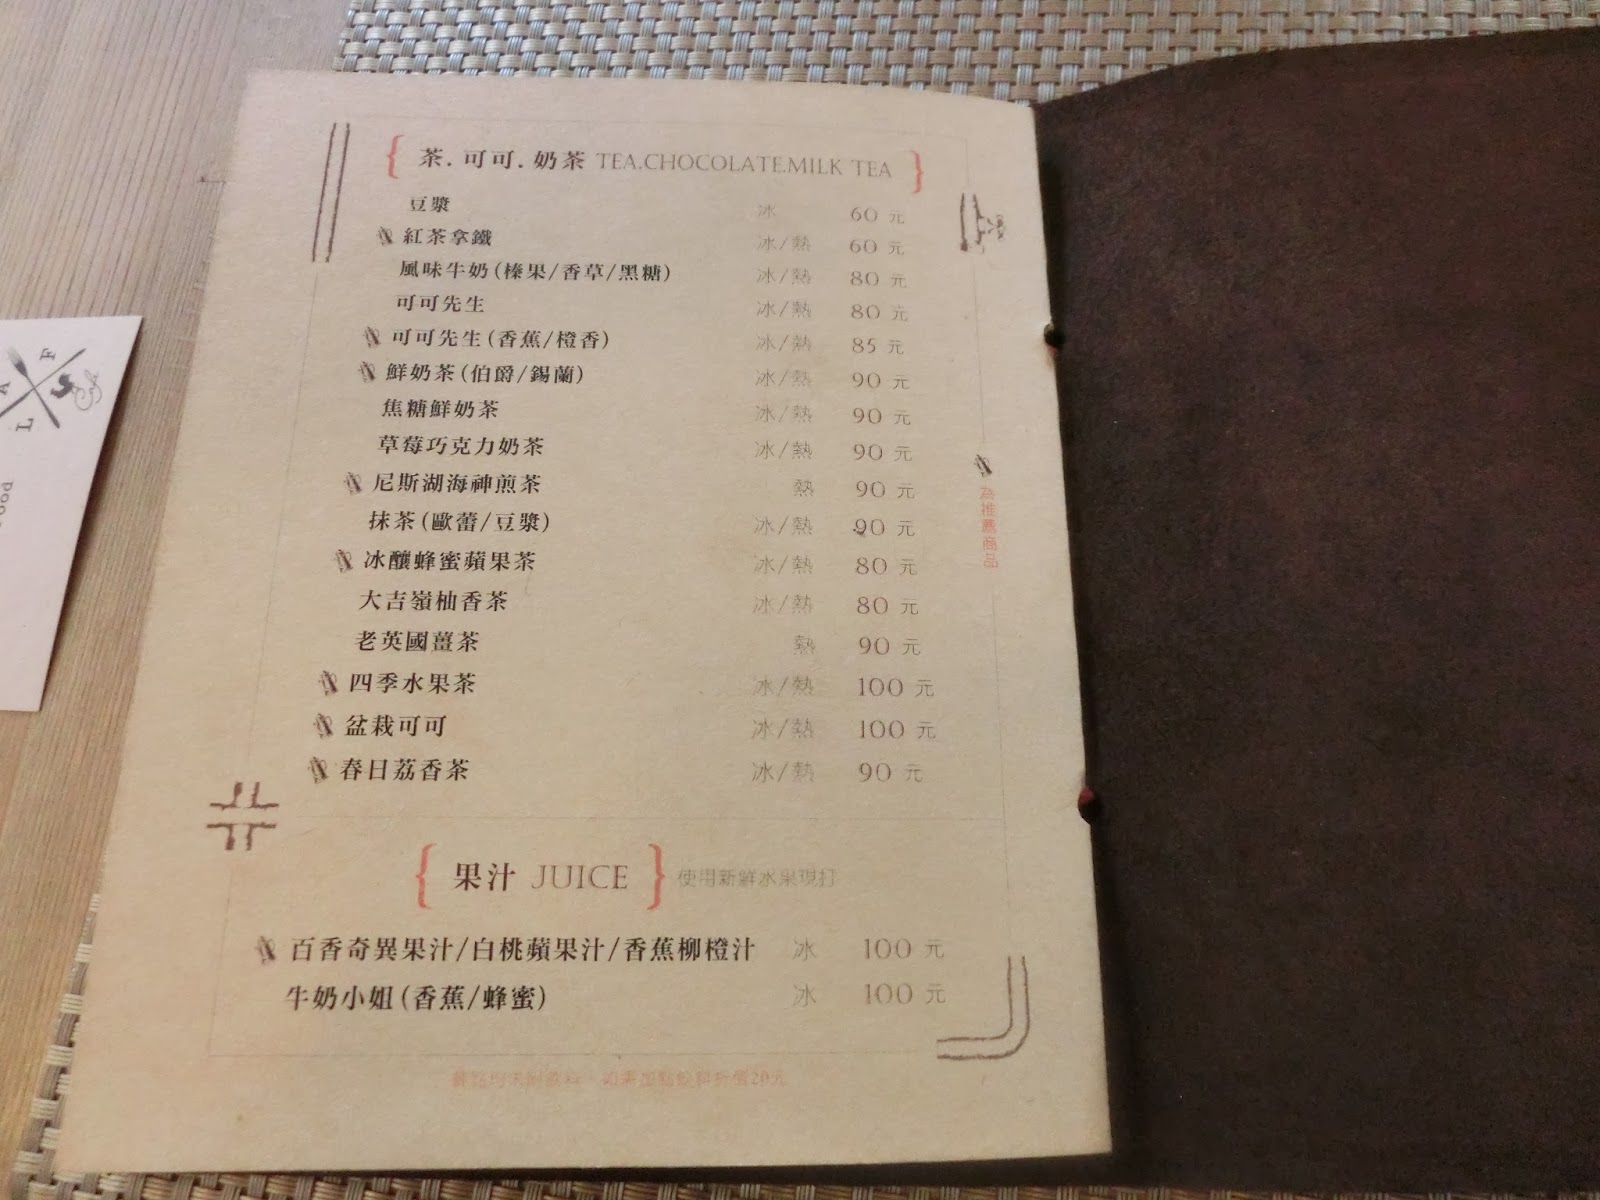 茶.可可.奶茶 TEA.CHOCOLATE.MILK TEA
豆漿 冰 60 元
紅茶拿鐵 冰/熱 60 元
風味牛奶(榛果/香草/黑糖) 冰/熱 80 元
可可先生 冰/熱 80 元
可可先生(香蕉/橙香) 冰/熱 85 元
鮮奶茶(伯爵/錫蘭) 冰/熱 90 元
焦糖鮮奶茶 冰/熱 90 元
草莓巧克力奶茶 冰/熱 90 元
尼斯湖海神煎茶 熱 90 元
抹茶(歐蕾/豆漿) 冰/熱 90 元
冰釀蜂蜜蘋果茶 冰/熱 80 元
大吉嶺柚香茶 冰/熱 80 元
老英國薑茶 熱 90 元
四季水果茶 冰/熱 100 元
盆栽可可 冰/熱 100 元
春日荔香茶 冰/熱 90 元
為推薦商品
果汁 JUICE 使用新鮮水果現打
百香奇異果汁/白桃蘋果汁/香蕉柳橙汁 冰 100 元
牛奶小姐(香蕉/蜂蜜) 冰 100 元
20元
L A F